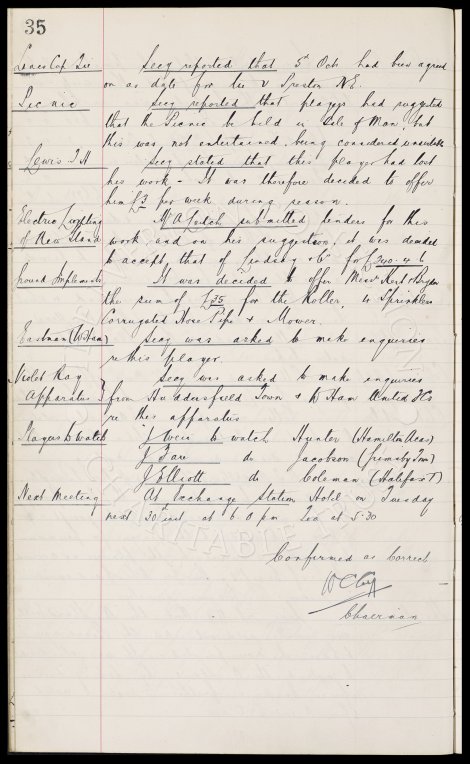 35
Lancs Cup Tie Secy reported that 5th Octr had been agreed
on as date for tie v Preston N.E.
Picnic Secy reported that players had suggested
that the Picnic be held in Isle of Man, but
this was not entertained, being considered unsuitable
Lewis T H Secy stated that this player had lost
his work - It was therefore decided to offer
him £3 per week during season.
Electric Lighting Mr A submitted tenders for this
of New Stand work and on his suggestion, it was decided
to accept that of Lindsay & Co for £240. 4. 6
Ground Implements It was decided to offer Messrs Kert & Bryden
the sum of £35 for the Roller, Sprinklers
Corrugated Hose Pipe & Mower.
Eastman (W Ham) Secy was asked to make enquiries
re this player.
Violet Ray Secy was asked to make enquiries
Apparatus from Huddersfield Town & W Ham United FCs
re this apparatus
Players to watch J Weir to watch Hunter (Hamilton Acas)
J do Jacobson (Grimsby Town)
J Elliott do Coleman (Halifax T)
Next Meeting At Exchange Station Hotel on Tuesday
next 30th inst at 6 0 pm Tea at 5.30
Confirmed as Correct
W C
Chairman